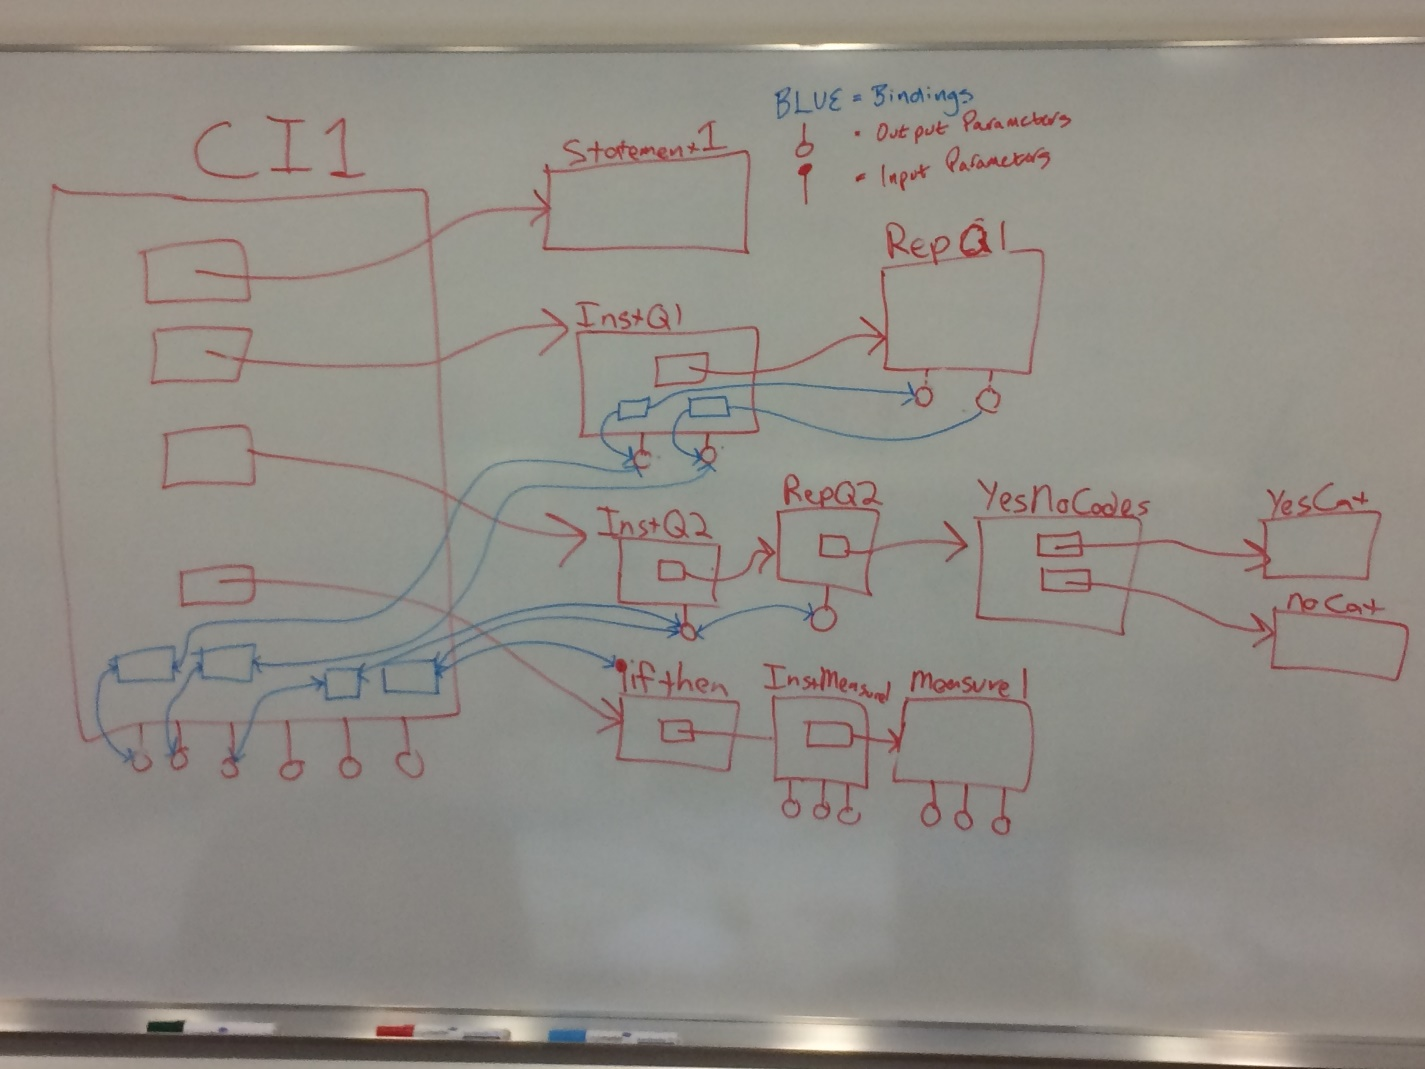 BLUE = Bindings
- Output Parameters
= Input Parameters
CI1
Statement1
RepQ1
InstQ1
InstQ2
RepQ2
YesNoCodes
YesCat
noCat
ifthen
InstMeasure1
measure1